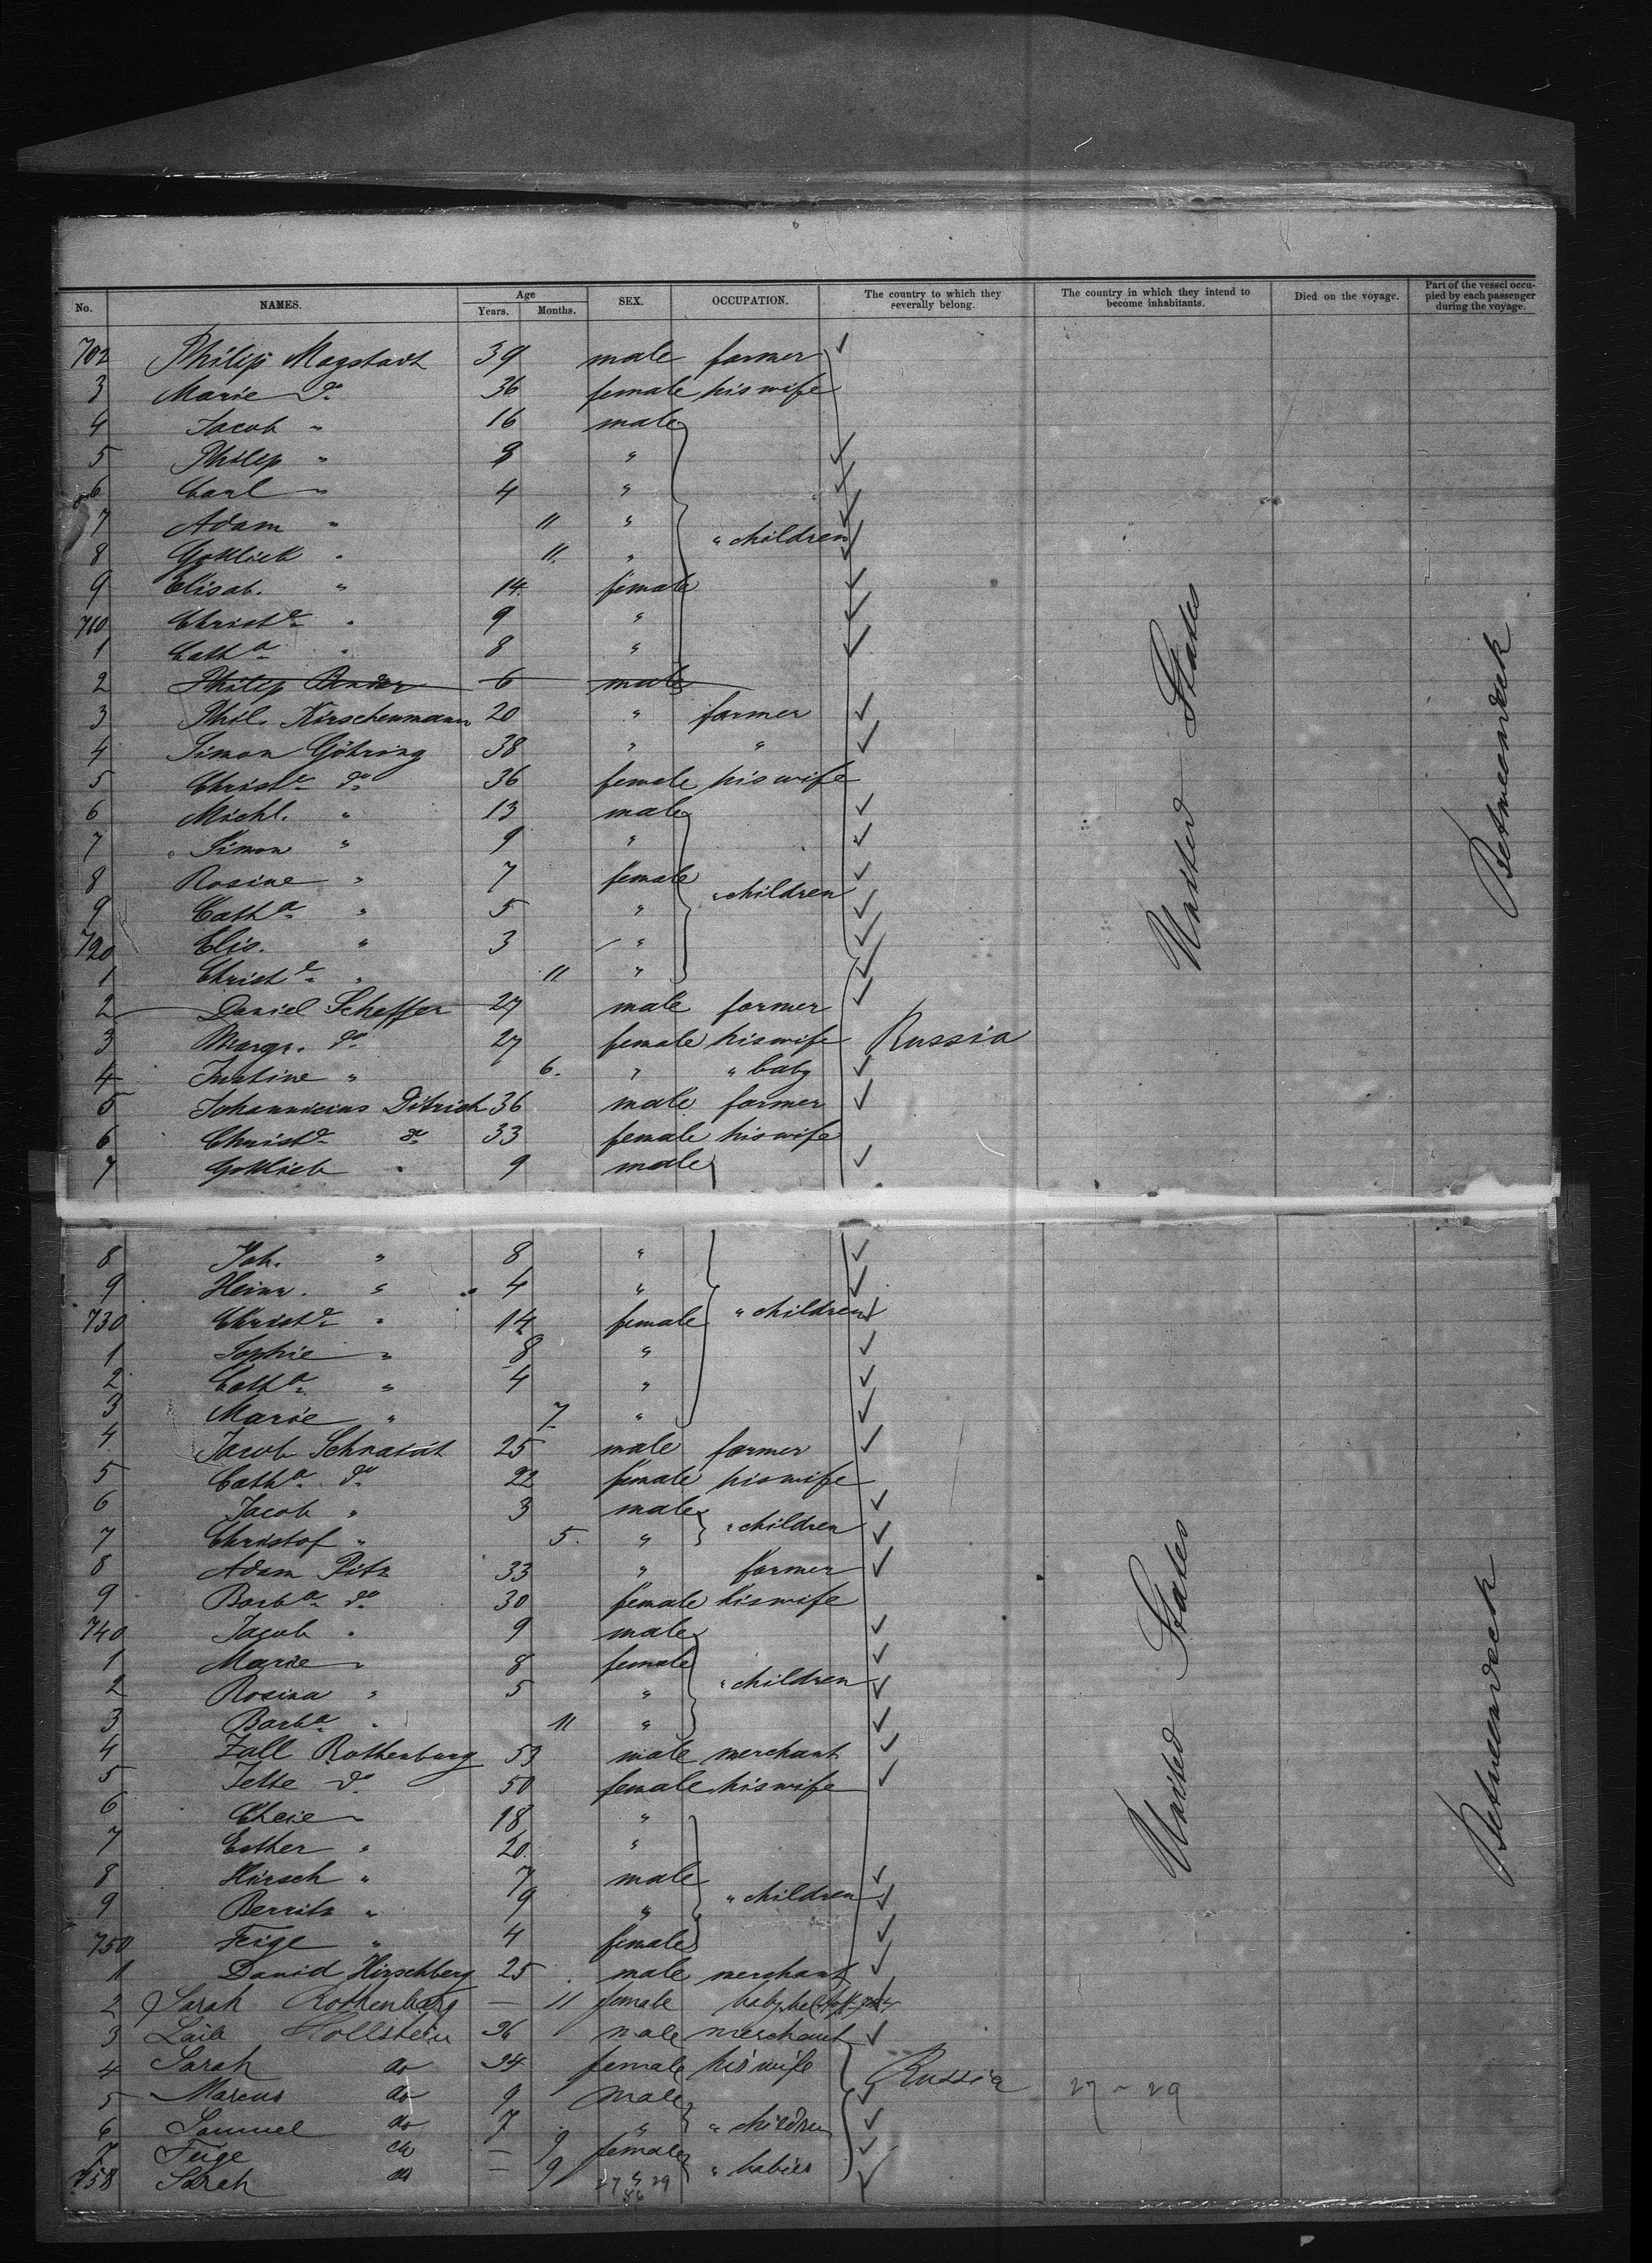 No. NAMES. Age Years. Months. SEX. OCCUPATION. The country to which they severally belong. The country in which they intend to become inhabitants. Died on the voyage. Part of the vessel occupied by each passenger during the voyage.
702 Philip Magstadt 39 male farmer
3 Marie do 36 female his wife
4 Jacob " 16 male
5 Philip " 8 "
6 Carl " 4 "
7 Adam " 11 " " children
8 Gottlieb " 11. "
9 Elisab. " 14 female
710 Christe " 9 "
1 Catha " 8 "
2 Philip Bender 6 male
3 Phil. Kirschenmann 20 " farmer
4 Simon Göhring 38 " "
5 Christe do 36 female his wife
6 Michl. " 13 male
7 Simon " 9 "
8 Rosine " 7 female " children
9 Catha " 5 "
720 Elis. " 3 "
1 Christe " 11 "
2 Daniel Scheffer 27 male farmer
3 Margr. do 27 female his wife Russia
4 Justine " 6. " " baby
5 Ditrich 36 male farmer
6 Christe do 33 female his wife
7 Gottlieb " 9 male
8 Joh. " 8 "
9 Heinr. " 4 "
730 Christe " 14 female " children
1 Sophie " 8 "
2 Catha " 4 "
3 Marie " 7 "
4 Jacob 25 male farmer
5 Catha do 22 female his wife
6 Jacob " 3 male " children
7 Christof " 5. "
8 Adam Ritz 33 " farmer
9 Barba do 30 female his wife
740 Jacob " 9 male
1 Marie " 8 female " children
2 Rosina " 5 "
3 Barba " 11 "
4 Zall Rothenburg 53 male merchant
5 Jette do 50 female his wife
6 18 "
7 Esther " 20. "
8 Hirsch " 7 male " children
9 " 9 "
750 Feige " 4 female
1 David Hirschberg 25 male merchant
2 Sarah Rothenburg — 11 female baby
3 Laib Hollstein 26 male merchant
4 Sarah do 24 female his wife Russia 27 - 29
5 Marcus do 9 male
6 Samuel do 7 " " children
7 Feige do — 9 female " babies
758 Sarah do — 9 "
27 29
56
United States
Betweendeck
United States
Betweendeck